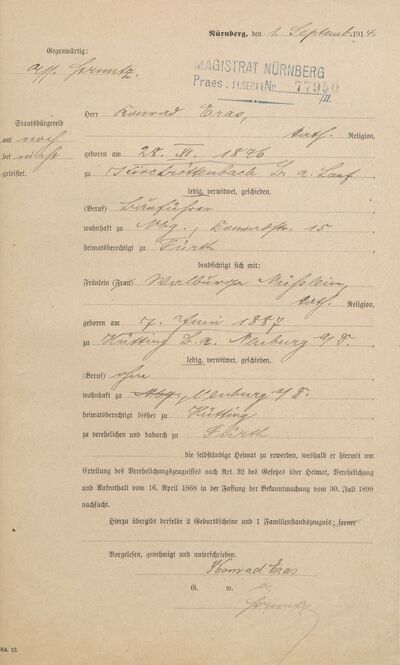 Nürnberg, den 1. Septemb. 1914.
Gegenwärtig:
MAGISTRAT NÜRNBERG
Praes: 11.SEP.14 Nr.
II.
Herr Konrad Eras,
Staatsbürgereid
kath. Religion,
am noch
geboren am 28. XI. 1876
bei nicht
zu B. A. Lauf
geleistet.
ledig, verwitwet, geschieden,
(Beruf) Bauführer
wohnhaft zu Nbg., Konradstr. 15
heimatsberechtigt zu Fürth
beabsichtigt sich mit:
Fräulein (Frau) Walburga
kath. Religion,
geboren am 7. Juni 1887
zu Hütting B. A. Neuburg a/D.
ledig, verwitwet, geschieden,
(Beruf) ohne
wohnhaft zu Nbg., Neuburg a/D.
heimatsberechtigt bisher zu Hütting
zu verehelichen und dadurch zu Fürth
die selbständige Heimat zu erwerben, weshalb er hiermit um
Erteilung des Verehelichungszeugnisses nach Art. 32 des Gesetzes über Heimat, Verehelichung
und Aufenthalt vom 16. April 1868 in der Fassung der Bekanntmachung vom 30. Juli 1899
nachsucht.
Hierzu übergibt derselbe 2 Geburtscheine und 1 Familienstandszeugnis; ferner
Vorgelesen, genehmigt und unterschrieben.
Konrad Eras
G. w. o.